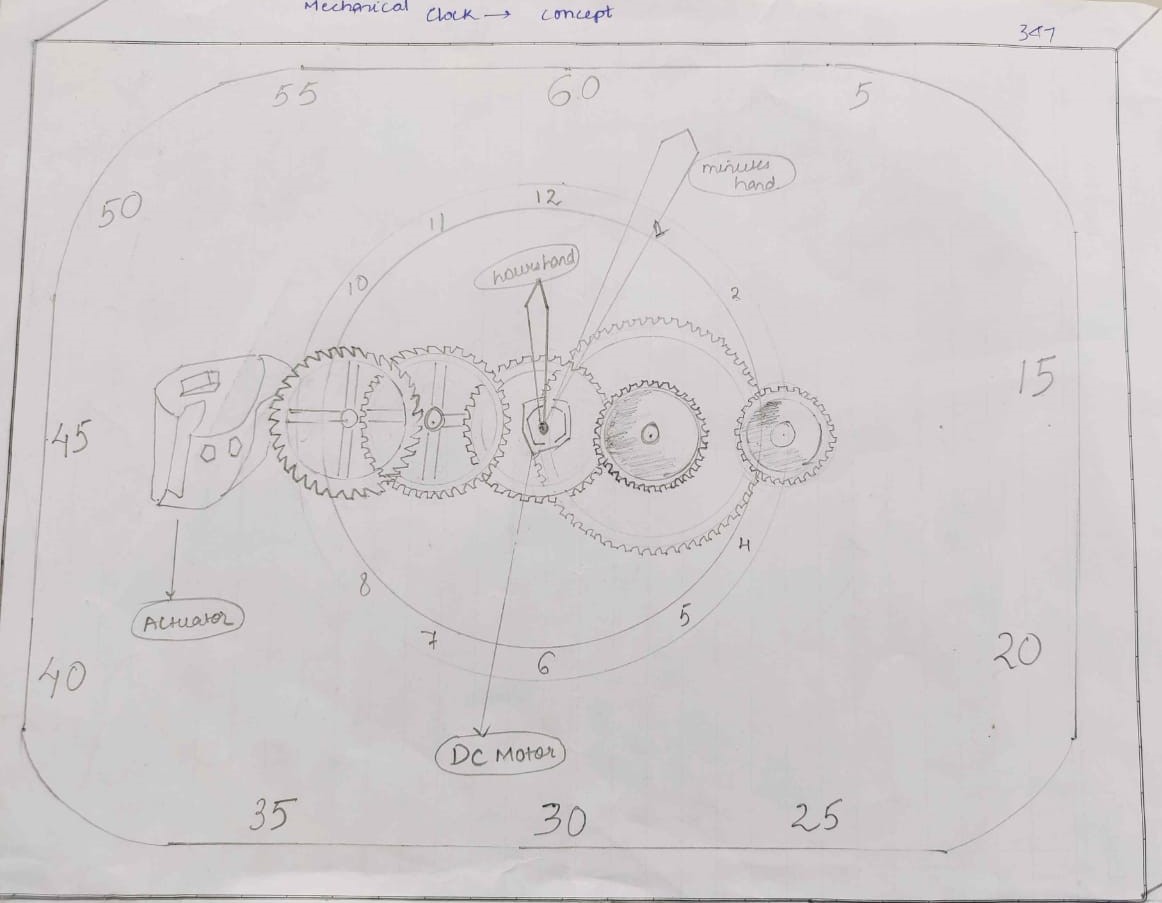 Mechanical Clock → concept
347
55 60 5
50
minutes
hand
12
11
1
hours hand
10
2
15
45
4
8
5
Actuator
7
6
20
40
DC Motor
35 30 25